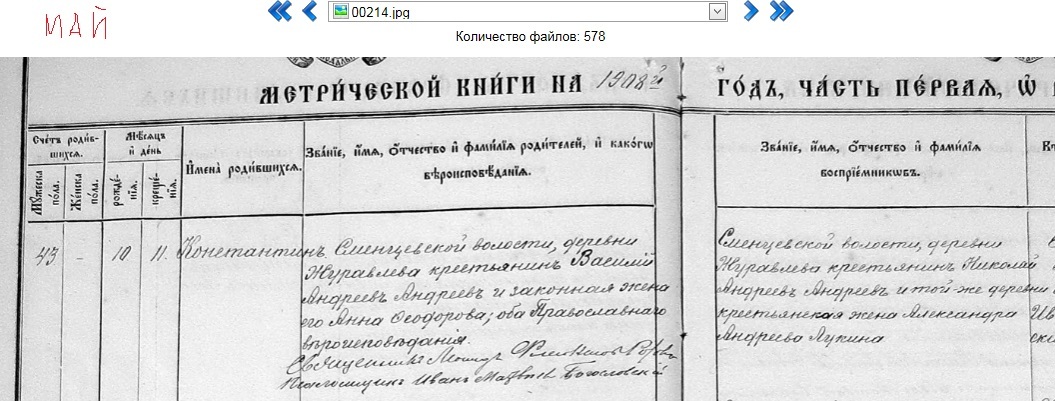 МАЙ
00214.jpg
Количество файлов: 578
МЕТРИ́ЧЕСКОЙ КНИ́ГИ НА 1908й ГО́ДЪ, ЧА́СТЬ ПЕ́РВАЯ, Ѡ
Сче́тъ роди́в-
шихся.
Мꙋ́жеска по́ла.
Же́нска по́ла.
Мѣ́сяцъ
и҆ де́нь
рожде́нїя.
креще́нїя.
И҆мена̀ роди́вшихся.
Зва́нїе, и҆́мя, ѻ҆́тчество и҆ фами́лїя роди́телей, и҆ како́гѡ
вѣроисповѣ́данїя.
Зва́нїе, и҆́мя, ѻ҆́тчество и҆ фами́лїя
воспрїе́мниковъ.
43 - 10 11. Константинъ
Сменцевской волости, деревни
Журавлева крестьянинъ Василій
Андреевъ Андреевъ и законная жена
его Анна Ѳеодорова; оба Православнаго
вѣроисповѣданія.
Священникъ
Псаломщикъ Иванъ Богословскій
Сменцевской волости, деревни
Журавлева крестьянинъ Николай
Андреевъ Андреевъ и той-же деревни
крестьянская жена Александра
Андреева Лукина